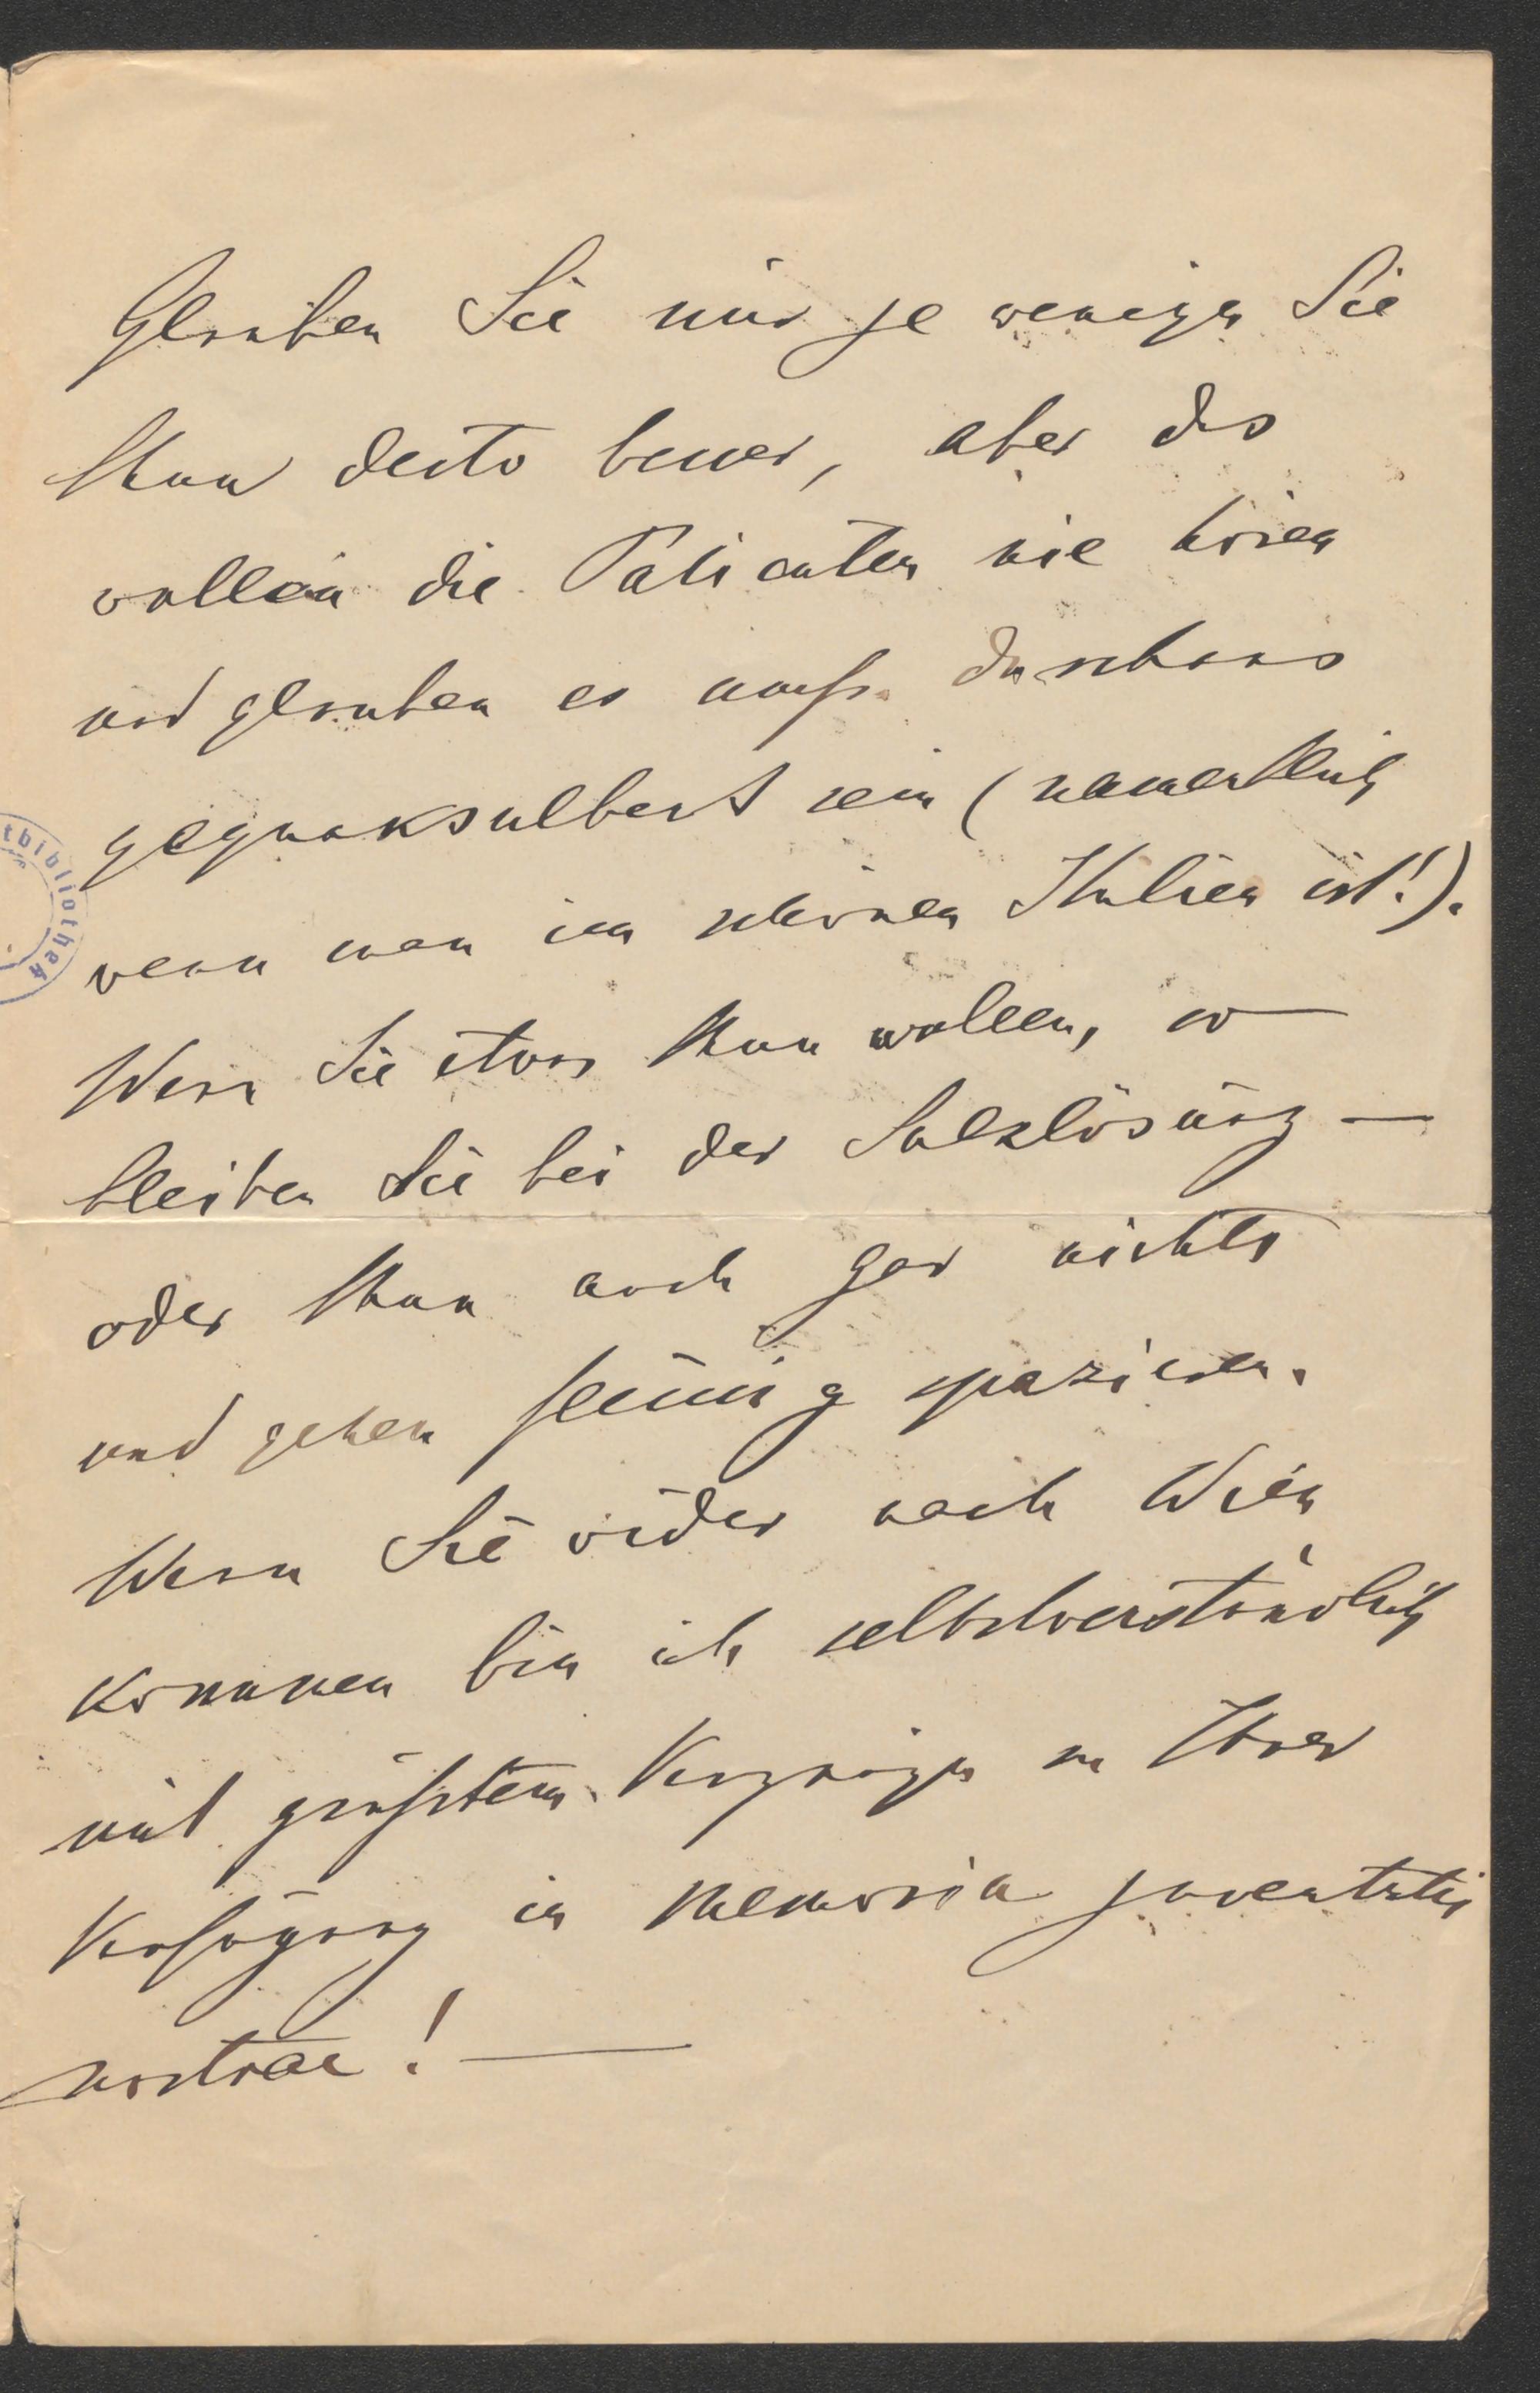 Glauben Sie mir je weniger Sie
thun desto besser, aber das
wollen die Patienten nie hören
und glauben es muss durchaus
gequaksalbert sein (namentlich
wenn man im schönen Italien ist!).
Wenn Sie etwas thun wollen, so
bleiben Sie bei der Salzlösung —
oder thun auch gar nichts
und gehen fleissig spazieren.
Wenn Sie wieder nach Wien
kommen bin ich selbstverständlich
mit grösstem Vergnügen zu Ihrer
Verfügung in memoria juventutis
nostrae! —
tbibliothek